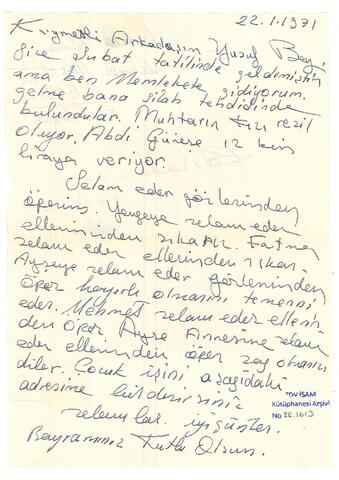 22.1.1971
Kıymetli Arkadaşım Yusuf Bey,
Size Şubat tatilinde geldemiştin
ama ben Memlekete gidiyorum.
gelme bana silah tehdidinde
bulundular. Muhtarın kızı rezil
oluyor. Abdi Güneşe 12 bin
liraya veriyor.
Selam eder gözlerinden
öperim. Yengeye selam eder
ellerinden sıkarız. Fatma
selam eder ellerinden sıkar.
Ayşeye selam eder gözlerinden
öper hayırlı olmasını temenni
eder. Mehmet selam eder ellerin
den öper Ayşe Annesine selam
eder ellerinden öper sağ olmasını
diler. Çocuk işini aşağıdaki
adresine bildirirsiniz
selamlar. iyi günler.
Bayramınız Kutlu Olsun.
TDV İSAM
Kütüphanesi Arşivi
No ZE.1613